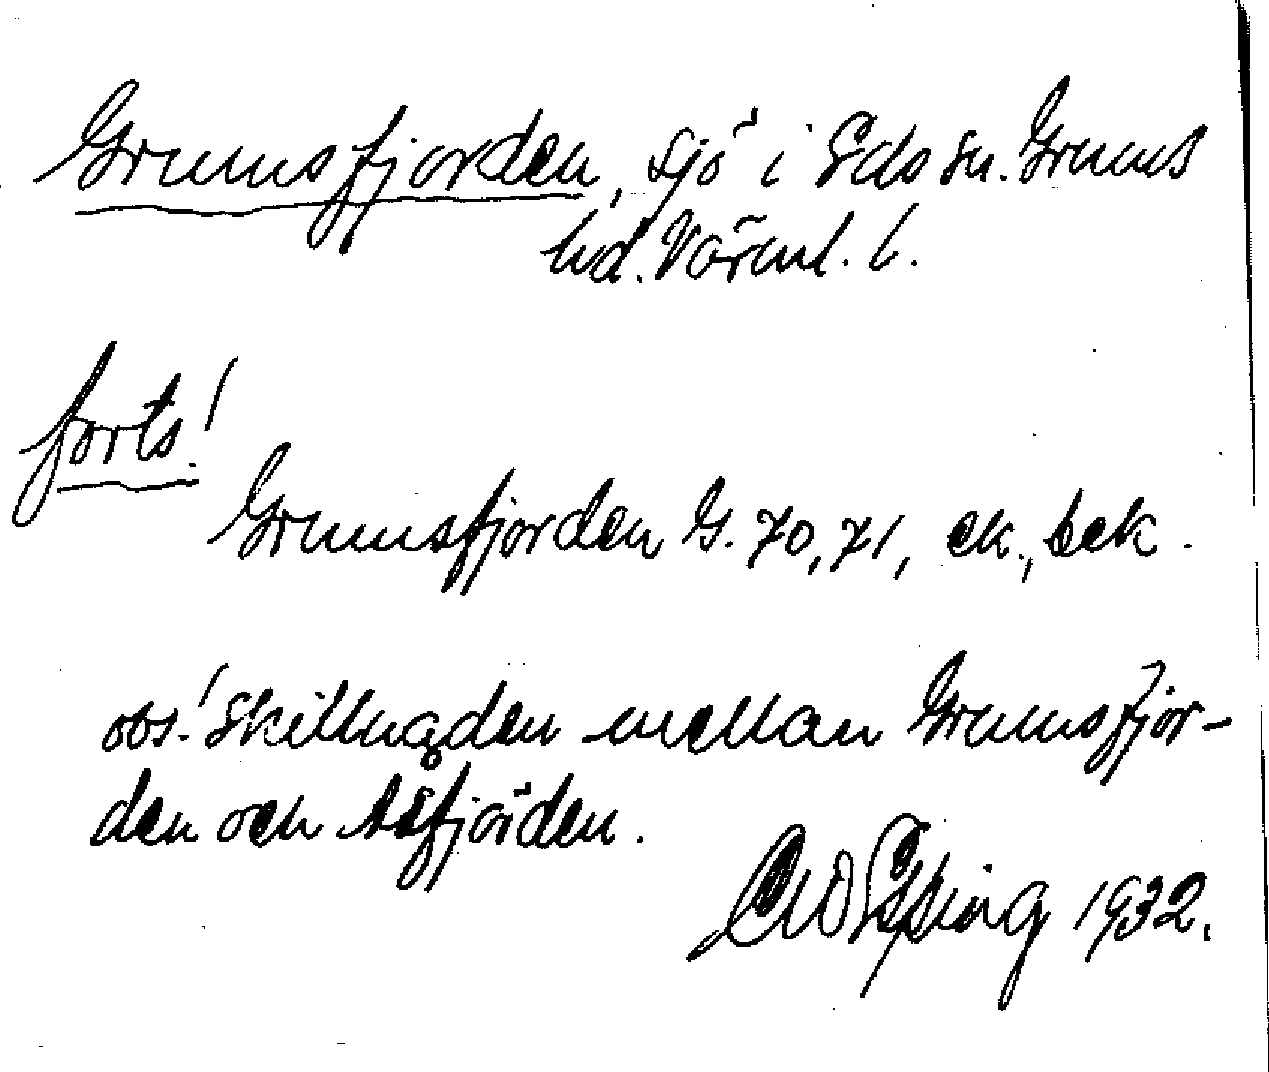 Grumsfjorden, sjö i Eds sn. Grums
hd. Värml. l.
forts!
Grumsfjorden G. 70, 71, ek., bek.
obs! Skillnaden mellan Grumsfjor-
den och Åsfjorden.
1932.